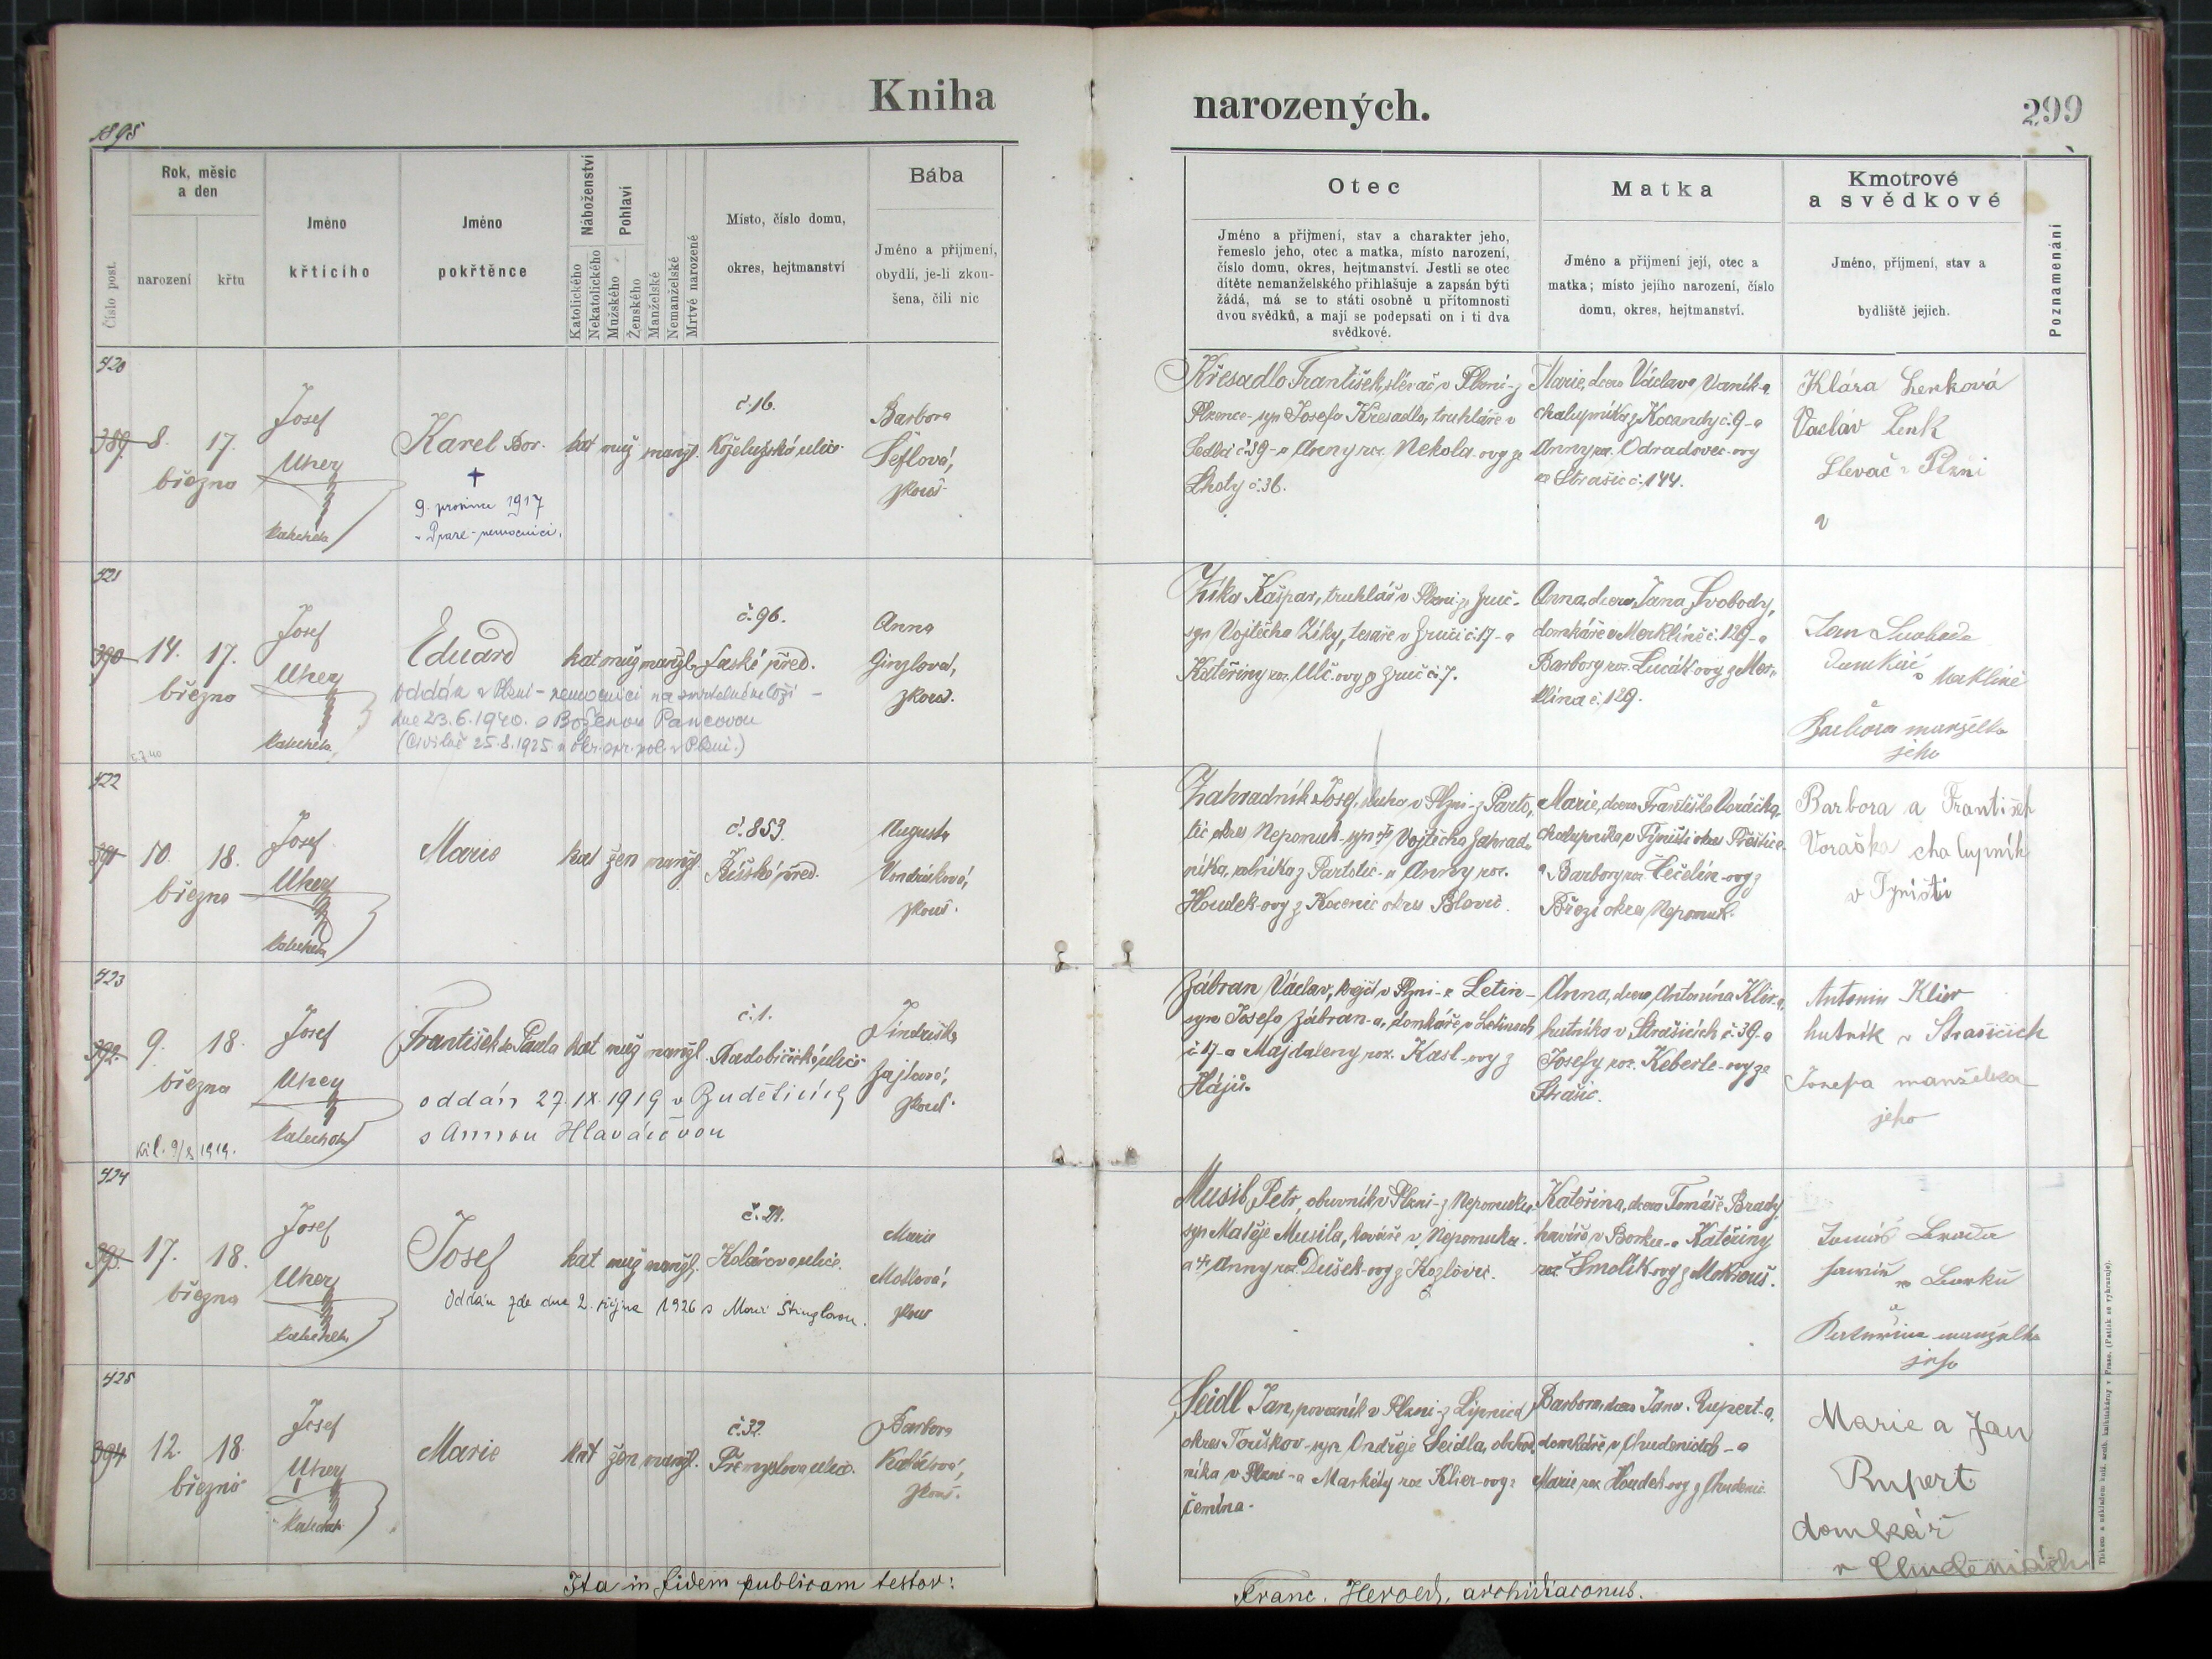 Kniha
narozených.
299
1895
Číslo post.
Rok, měsíc
a den
narození
křtu
Jméno
křtícího
Jméno
pokřtěnce
Náboženství
Katolického
Nekatolického
Pohlaví
Mužského
Ženského
Manželské
Nemanželské
Mrtvě narozené
Místo, číslo domu,
okres, hejtmanství
Bába
Jméno a příjmení,
obydlí, je-li zkou-
šena, čili nic
Otec
Jméno a příjmení, stav a charakter jeho,
řemeslo jeho, otec a matka, místo narození,
číslo domu, okres, hejtmanství. Jestli se otec
dítěte nemanželského přihlašuje a zapsán býti
žádá, má se to státi osobně u přítomnosti
dvou svědků, a mají se podepsati on i ti dva
svědkové.
Matka
Jméno a příjmení její, otec a
matka; místo jejího narození, číslo
domu, okres, hejtmanství.
Kmotrové
a svědkové
Jméno, příjmení, stav a
bydliště jejich.
Poznamenání
420
389 8. 17.
března
Josef
Uhey
katecheta
Karel Bor.
9. prosince 1917
v Praze - nemocnici.
kat muž manž.
č. 16.
Koželužská ulice
Barbora
Šeflová,
zkouš.
Křesadlo František, slévač v Plzni - z
Plzence - syn Josefa Křesadla, truhláře v
Sedlci č. 39 - a Anny roz. Nekola-ovy ze
Lhoty č. 36.
Marie, dcera Václava Vaník-a
chalupníka z Kocandy č. 9 - a
Anny roz. Odradovec-ovy
ze Strašic č. 144.
Klára Lenková
Václav Lenk
Slevač v Plzni
421
390 14. 17.
března
Josef
Uhey
katecheta
Eduard
kat muž manž.
č. 96.
Saské před.
Anna
Ginzlová,
zkouš.
oddán v Plzni - nemocnici na smrtelném loži -
dne 23.6.1940. s Boženou Pancovou
(Civilně 25.8.1925 u okr. spr. pol. v Plzni.)
Zíka Kašpar, truhlář v Plzni - ze Zruč -
syn Vojtěcha Zíky, tesaře v Zruči č. 17 - a
Kateřiny roz. Ulč-ovy ze Zruč č. 7.
Anna, dcera Jana Svobody,
domkáře v Merklíně č. 129 - a
Barbory roz. Lucák-ovy z Mer-
klína č. 129.
Jan Svoboda
Domkář v Meklíně
Barbora manželka
jeho
422
391 10. 18.
března
Josef
Uhey
katecheta
Marie
kat žen manž.
č. 853.
Říšské před.
Augusta
Vondrášková,
zkouš.
Zahradník Josef, sluha v Plzni - z Parto-
tic okres Nepomuk - syn Vojtěcha Zahrad-
níka, rolníka z Partotic - a Anny roz.
Houdek-ovy z Kocenic okres Blovic.
Marie, dcera Františka Voráčka,
chalupníka v Týništi okres Přeštice -
a Barbory roz. Čečelín-ovy z
Březí okres Nepomuk.
Barbora a František
Voračka chalupník
v Tyništi
423
392 9. 18.
března
Josef
Uhey
katecheta
František de Paula
kat muž manž.
č. 1.
Radobičická ulice
Jindřiška
Zajícová,
zkouš.
oddán 27. IX. 1919 v Budětících
s Annou Hlaváčovou
Zábran Václav, krejčí v Plzni - z Letin -
syn Josefa Zábran-a, domkáře v Letinech
č. 17 - a Majdaleny roz. Kasl-ovy z
Hájů.
Anna, dcera Antonína Klír-a,
hutníka v Strašicích č. 39 - a
Josefy roz. Keberle-ovy ze
Strašic.
Antonin Klír
hutník v Strašicích
Josefa manželka
jeho
424
393 17. 18.
března
Josef
Uhey
katecheta
Josef
kat muž manž.
č. 21.
Kolárova ulice.
Marie
Mollová,
zkouš
Oddán zde dne 2. října 1926 s Marií Stinglovou.
Musil Petr, obuvník v Plzni - z Nepomuka -
syn Matěje Musila, kováře v Nepomuka
a Anny roz. Dušek-ovy z Kozlovic.
Kateřina, dcera Tomáše Brady
havíře v Borku - a Kateřiny
roz. Smolík-ovy z Mokrouš.
Tomáš Brada
havíř v Borku
Kateřina manželka
jeho
425
394 12. 18.
března
Josef
Uhey
katecheta
Marie
kat žen manž.
č. 32.
Přemyslova ulice.
Barbora
zkouš.
Seidl Jan, povozník v Plzni - z Lipnice
okres Touškov - syn Ondřeje Seidla, obchod-
níka v Plzni - a Markéty roz. Klier-ovy z
Čemína -
Barbora, dcera Jana Rupert-a,
domkáře v Chudenicích - a
Marie roz. Houdek-ovy z Chudenic
Marie a Jan
Rupert
domkář
v Chudenicích
Ita in fidem publicam testor:
Franc. Herold, archidiaconus.